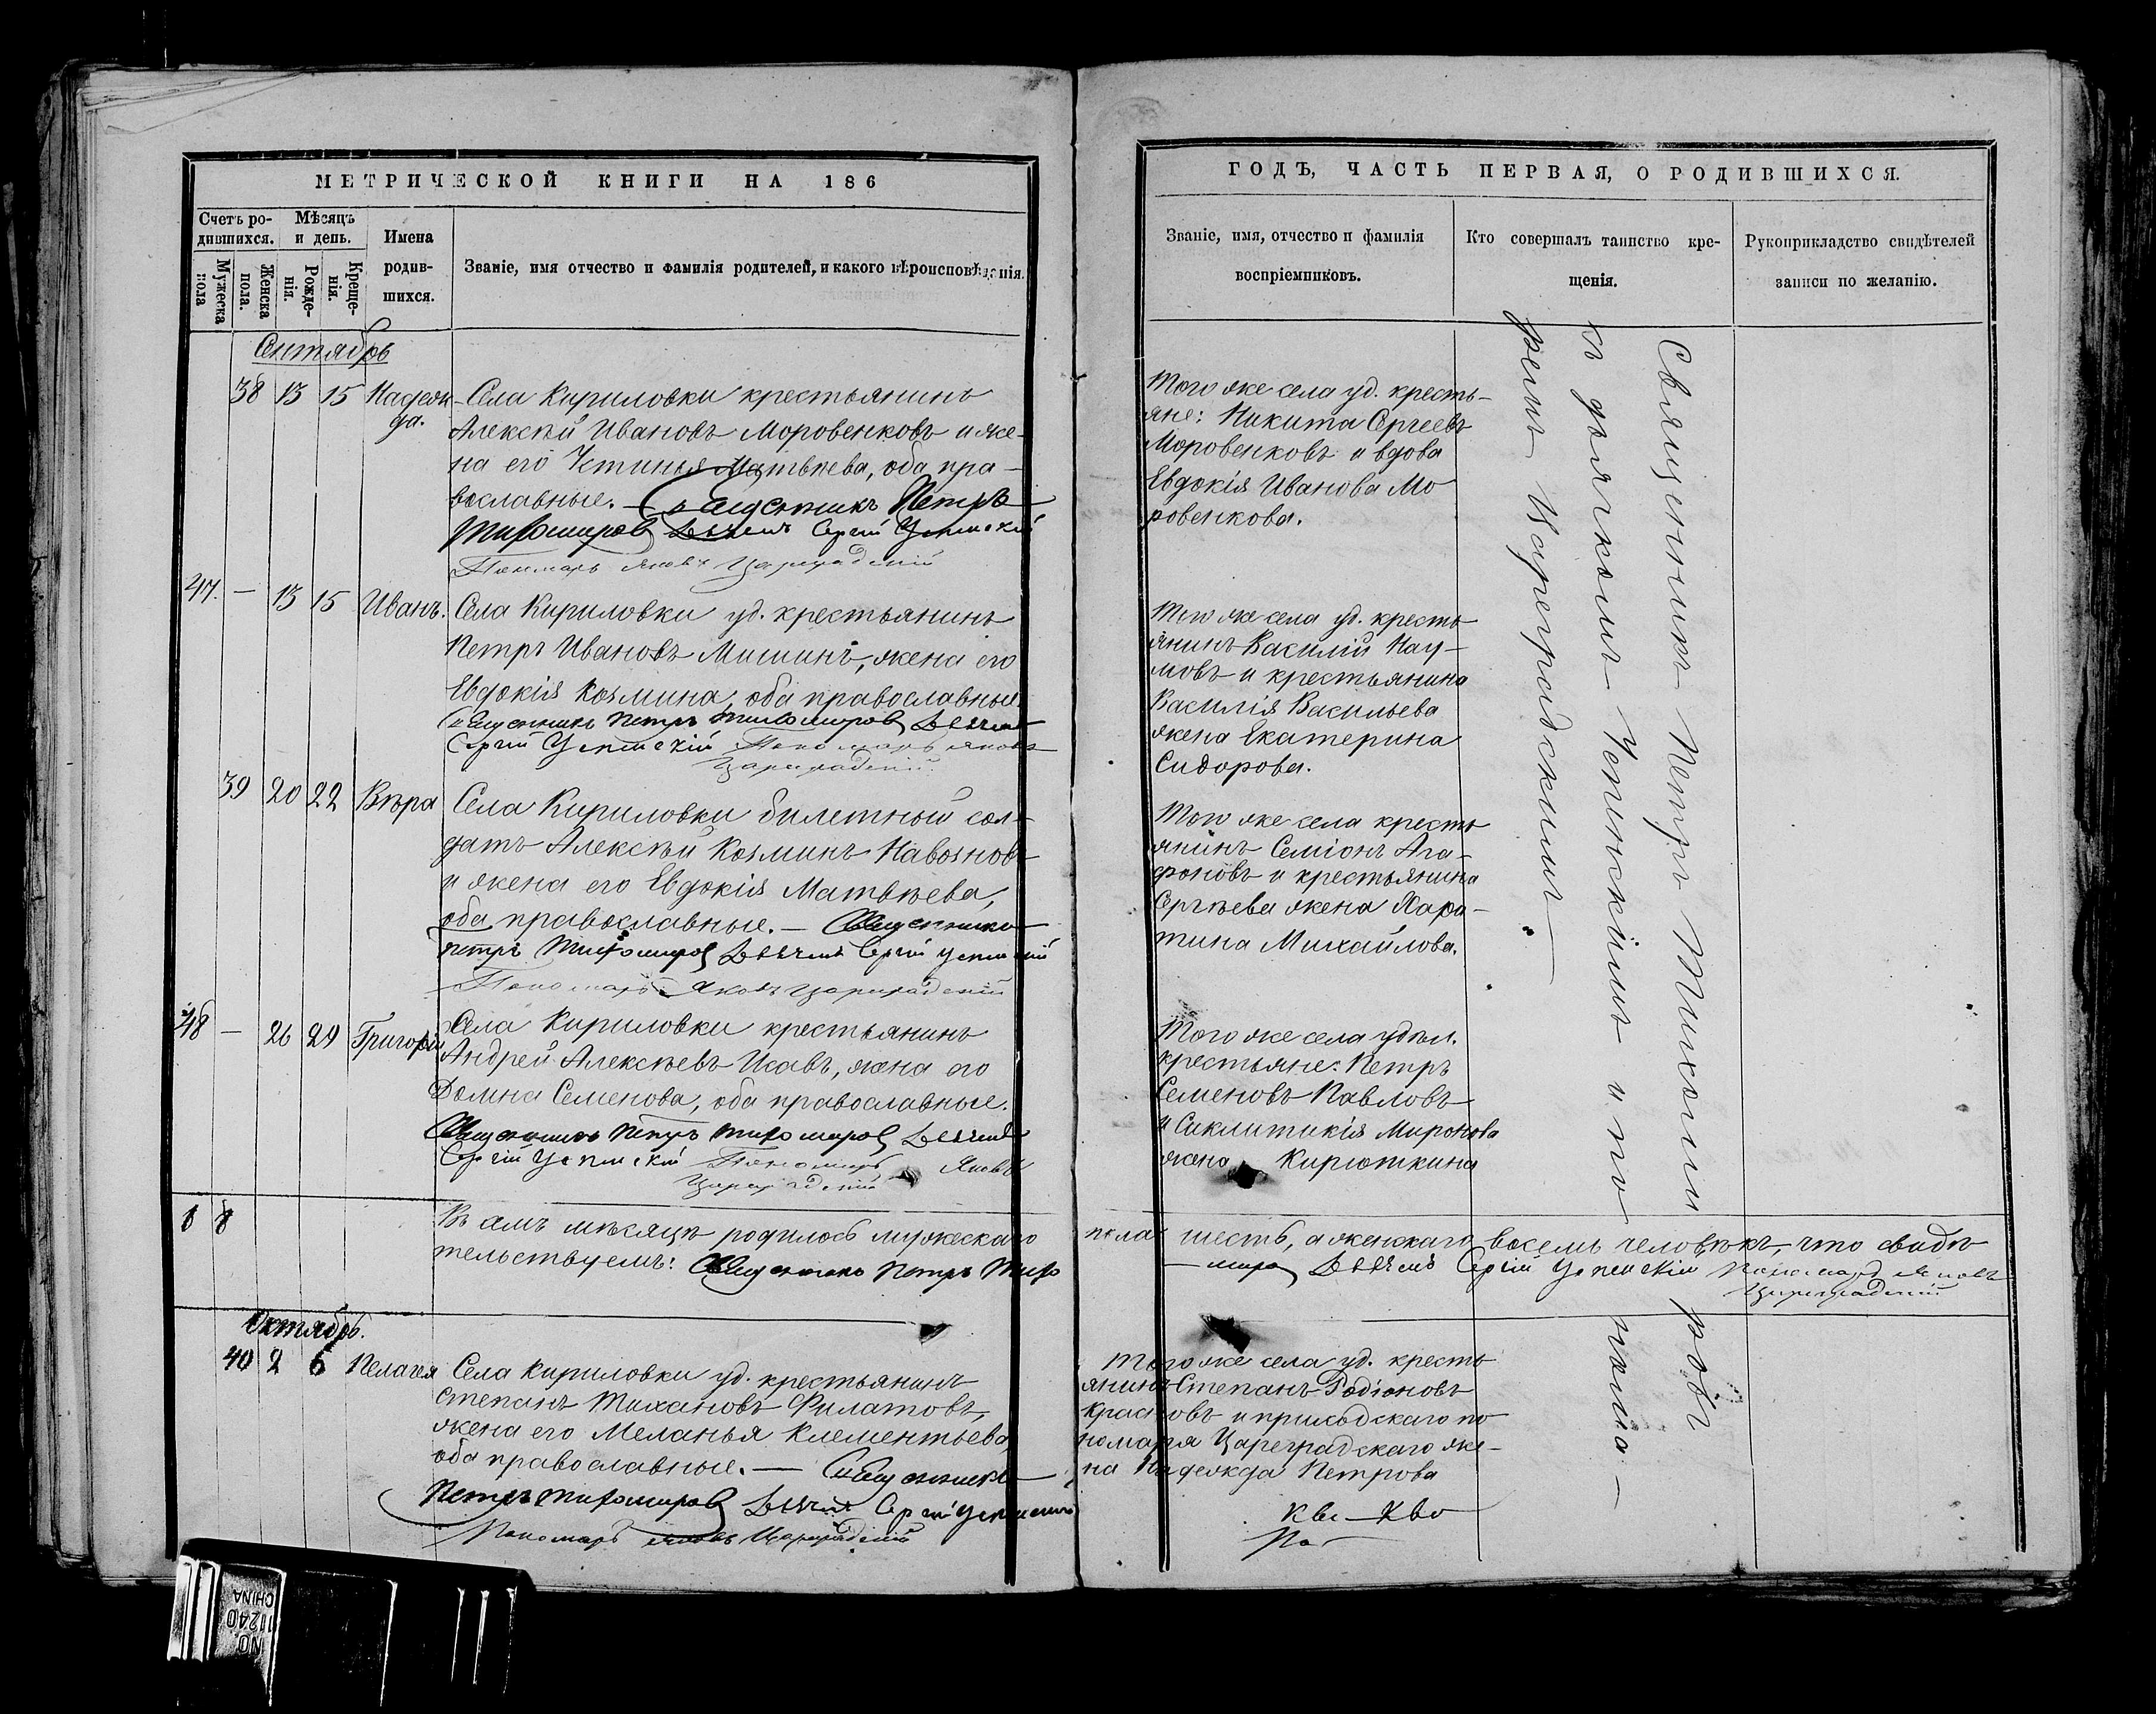 МЕТРИЧЕСКОЙ КНИГИ НА 186
Счетъ ро-
дившихся.
Мѣсяцъ
и день.
Имена
родив-
шихся.
Званіе, имя отчество и фамилія родителей, и какого вѣроисповѣданія.
Мужеска
пола
Женска
пола.
Рожде-
нія.
Креще-
нія.
Сентябрь
38 13 15 Надеж-
да.
Села Кириловки крестьянинъ
Алексѣй Ивановъ Моровенковъ и же-
на его Устинья Матвѣева, оба пра-
вославные. — Священникъ Петръ
Тихомировъ Дьячекъ Сергій Успенскій
Пономарь Яковъ Цареградскій
47. — 13 15 Иванъ.
Села Кириловки уд. крестьянинъ
Петръ Ивановъ Мишинъ, жена его
Евдокія Козмина, оба православные
Священникъ Петръ Тихомировъ Дьячекъ
Сергій Успенскій Пономарь Яковъ
Цареградскій.
39 20 22 Вѣра
Села Кириловки билетный сол-
датъ Алексѣй Козминъ Навозновъ
и жена его Евдокія Матвѣева,
оба православные. — Священникъ
Петръ Тихомировъ Дьячекъ Сергій Успенскій
Пономарь Яковъ Цареградскій
48 — 26 29 Григорій
Села Кириловки крестьянинъ
Андрей Алексѣевъ Исавъ, жена его
Домна Семенова, оба православные.
Священникъ Петръ Тихомировъ Дьячекъ
Сергій Успенскій Пономарь Яковъ
Цареградскій
8
мѣсяцѣ родилось мужескаго
тельствуемъ: Священникъ Петръ Тихо
Октябрь.
40 2 6 Пелагея
Села Кириловки уд. крестьянинъ
Степанъ Тихановъ Филатовъ,
жена его Меланья Клементьева,
оба православные. — Священникъ
Петръ Тихомировъ Дьячекъ Сергій Успенскій
Пономарь Яковъ Цареградскій
ГОДЪ, ЧАСТЬ ПЕРВАЯ, О РОДИВШИХСЯ.
Званіе, имя, отчество и фамилія
воспріемниковъ.
Кто совершалъ таинство кре-
щенія.
Рукоприкладство свидѣтелей
записи по желанію.
Того же села уд. кресть-
яне: Никита Сергеевъ
Моровенковъ и вдова
Евдокія Иванова Мо
ровенкова.
Того же села уд. кресть
янинъ Василій Нау-
мовъ и крестьянина
Василія Васильева
жена Екатерина
Сидорова.
Того же села кресть
янинъ Семіонъ Ага-
фоновъ и крестьянина
Сергѣева жена Хара-
тина Михайлова.
Того же села удѣл.
крестьяне: Петръ
Семеновъ Павловъ
и Синклитикія Миронова
жена Кирюткина
пола шесть, а женскаго восемь человѣкъ, что свидѣ
мировъ Дьячекъ Сергій Успенскій Пономарь Яковъ
Цареградскій
Того же села уд. кресть
янинъ Степанъ Родіоновъ
Красновъ и приходскаго по
номаря Цареградскаго же-
на Надежда Петрова
Священникъ Петръ Тихоми
ровъ
съ дьячкомъ Успенскимъ и поно
маремъ Цареградскимъ —
NO.
11240
CHINA